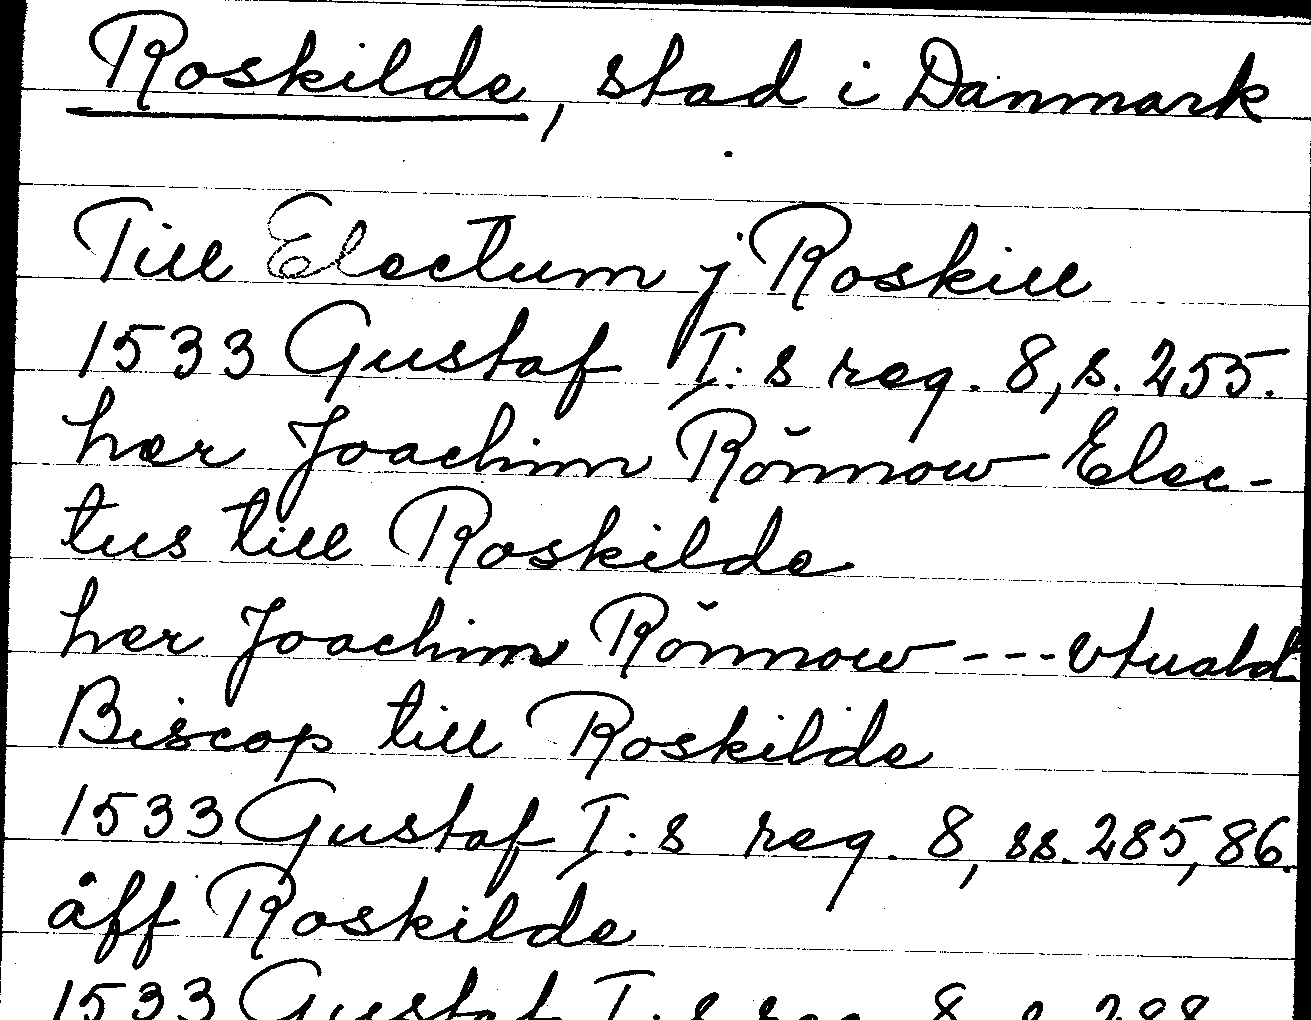 Roskilde, stad i Danmark
Till Electum j Roskill
1533 Gustaf I:s reg. 8, s. 255.
her Joachim Rönnow Elec-
tus till Roskilde
her Joachim Rönnow --- vtuald
Biscop till Roskilde
1533 Gustaf I:s reg. 8, ss. 285, 86.
åff Roskilde
1533 Gustaf I:s reg. 8, s. 298